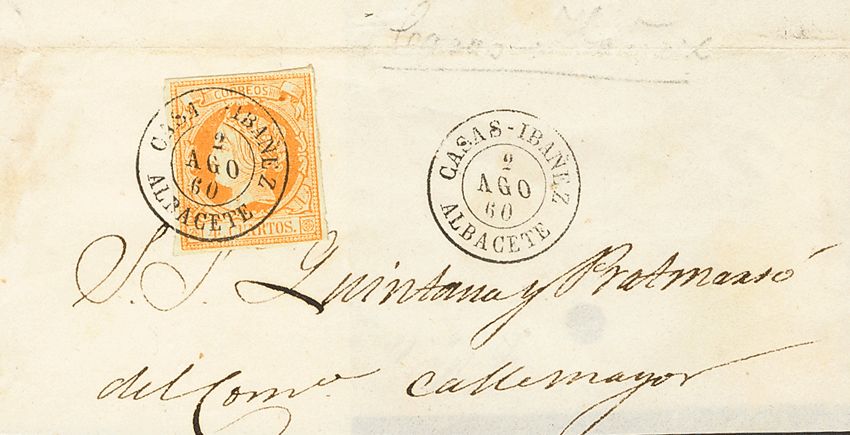 CORREOS
CASAS-IBAÑEZ
2
AGO
60
ALBACETE
CUARTOS.
CASAS-IBAÑEZ
2
AGO
60
ALBACETE
S. S. Quintana y Pratmarsó
del Comº calle mayor